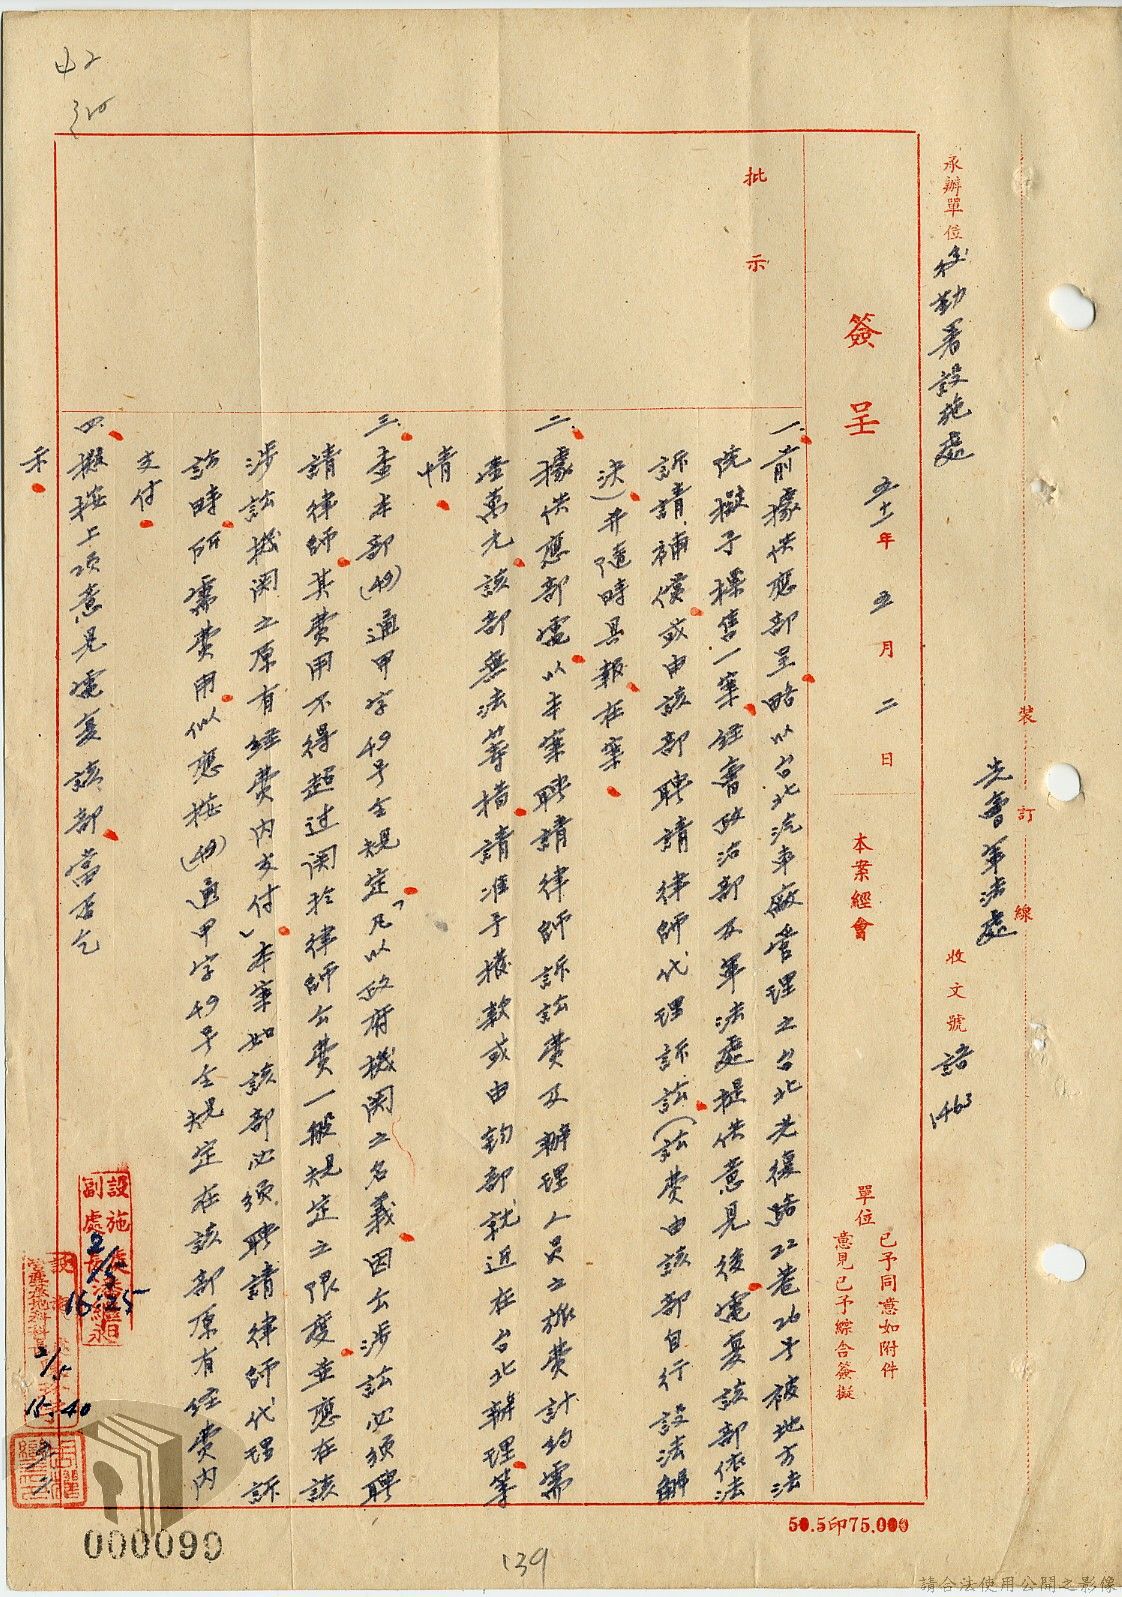 承辦單位 後勤署設施處
先會軍法處
收文號 語1463
簽呈
五十一年五月二日
本案經會
單位
已予同意如附件
意見已予綜合簽擬
批示
一、前據供應部呈略以台北汽車廠管理之台北光復路22巷26号被地方法
院擬予標售一案經會政治部及軍法處提供意見後電复該部依法
訴請補償或由該部聘請律師代理訴訟(訟費由該部自行設法解
決)并隨時具報在案
二、據供應部電以本案聘請律師訴訟費及辦理人員之旅費計約需
壹萬元該部無法籌措請准予撥款或由鈞部就近在台北辦理等
情
三、查本部(49)通甲字49号令規定「凡以政府機関之名義因公涉訟必須聘
請律師其費用不得超过関於律師公費一般規定之限度並應在該
涉訟機関之原有経費内支付」本案如該部必須聘請律師代理訴
訟時所需費用似應按(49)通甲字49号令規定在該部原有経費内
支付
四、擬按上項意見電复該部當否乞
示
設施處
副處長
2/5
16:25
2/5
15:40
50.5印75.000
000090
139
裝訂線
請合法使用公開之影像